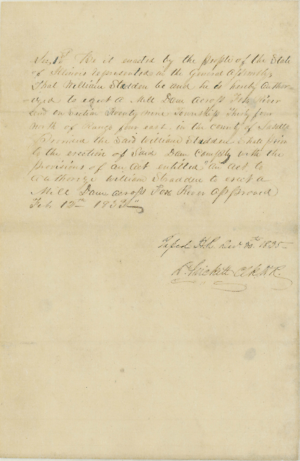 Sec 1st Be it enacted by the people of the State
of Illinois represented in the General Assembly
That William Stadden be and he is hereby author-
ized to erect a Mill Dam across Fox River
on Section Twenty nine Township Thirty four
north of Range five east in the County of LaSalle
Provided the said William Stadden shall prior
to the erection of said Dam comply with the
provisions of an act entitled "An Act to
authorize William Stadden to erect a
Mill Dam across Fox River Approved
Feb 12th
1835